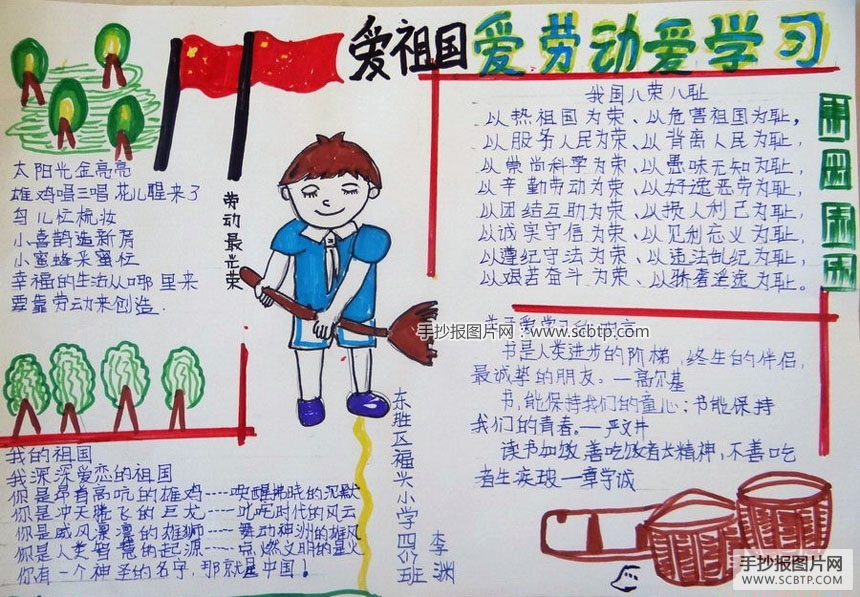 爱祖国爱劳动爱学习
太阳光金亮亮
雄鸡唱三唱 花儿醒来了
鸟儿忙梳妆
小喜鹊造新房
小蜜蜂采蜜忙
幸福的生活从哪里来
要靠劳动来创造.
劳动最光荣
我国八荣八耻
以热祖国为荣、以危害祖国为耻,
以服务人民为荣、以背离人民为耻,
以崇尚科学为荣、以愚昧无知为耻,
以辛勤劳动为荣、以好逸恶劳为耻,
以团结互助为荣、以损人利己为耻,
以诚实守信为荣、以见利忘义为耻,
以遵纪守法为荣、以违法乱纪为耻,
以艰苦奋斗为荣、以骄奢淫逸为耻。
手抄报图片网:www.scbtp.com
书是人类进步的阶梯,终生的伴侣,
最诚挚的朋友。—高尔基
书,能保持我们的童心;书能保持
我们的青春。—严文井
读书如饭,善吃饭者长精神,不善吃
者生疾病—章学诚
我的祖国
我深深爱恋的祖国
你是昂首高吭的雄鸡----唤醒拂晓的沉默
你是冲天腾飞的巨龙----叱咤时代的风云
你是威风凛凛的雄狮----舞动神州的雄风
你是人类智慧的起源----点燃文明的星火
你有一个神圣的名字,那就是中国!
东胜区福兴小学四份班
李渊
手抄报图片网
WWW.SCBTP.COM